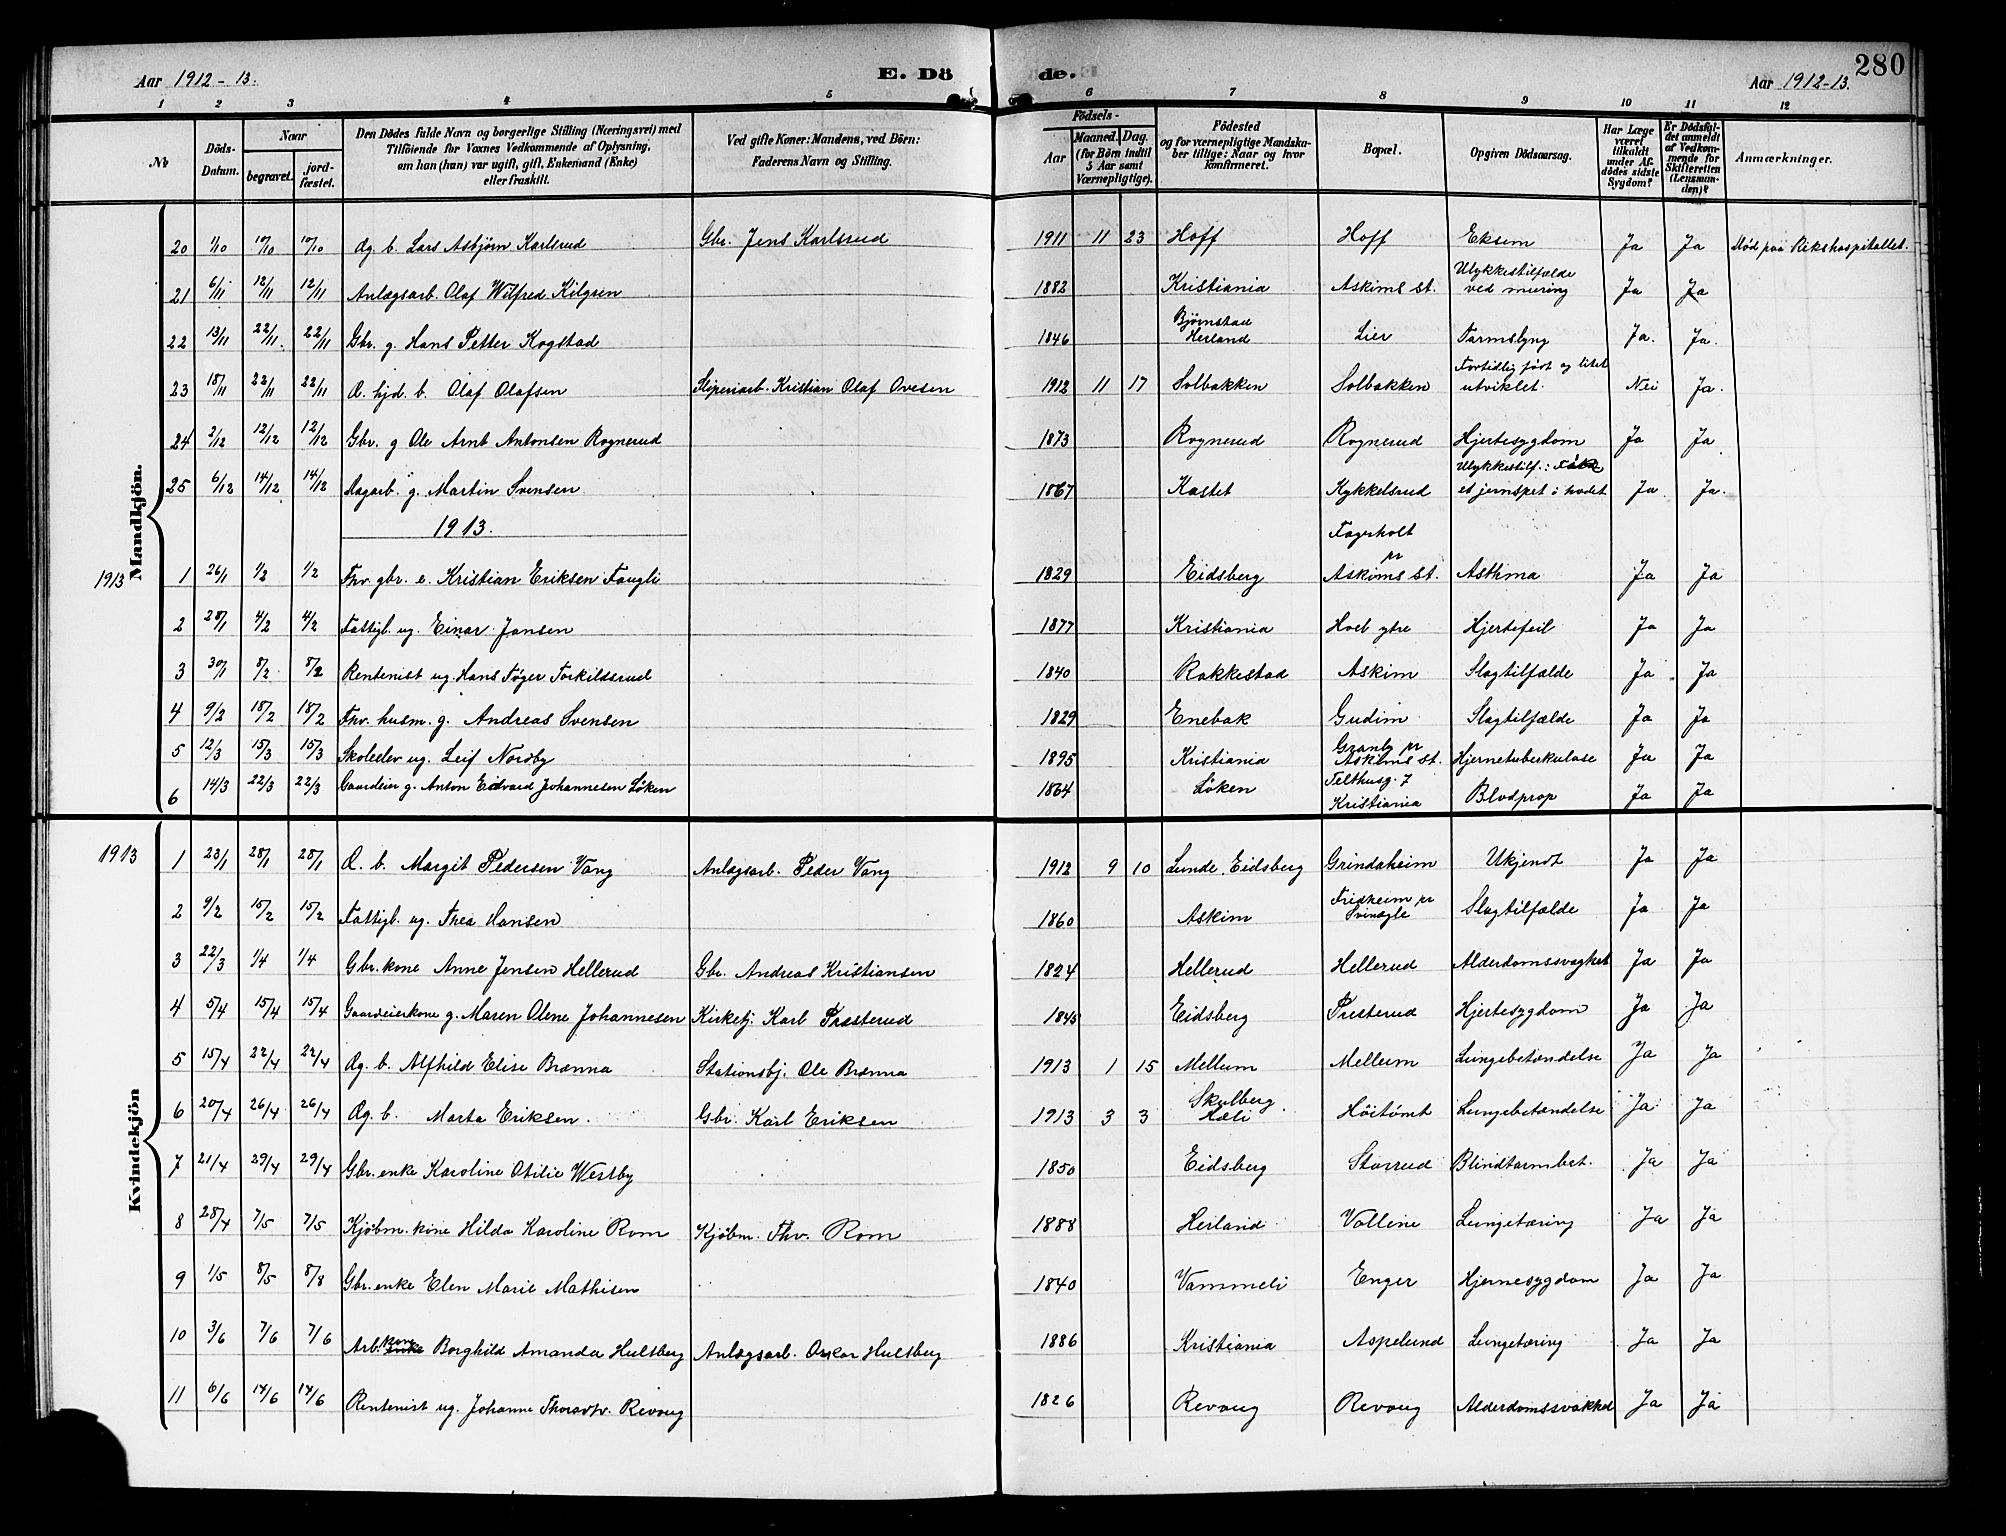 Aar 1912-13. E. Dö de. Aar 1912-13. 280
1 2 3 4 5 6 7 8 9 10 11 12
No Döds-Datum. Naar begravet. jord-fæstet. Den Dödes fulde Navn og borgerlige Stilling (Næringsvei) med Tilföiende for Voxnes Vedkommende af Oplysning, om hun (han) var ugift, gift, Enkemand (Enke) eller fraskilt. Ved gifte Koner: Mandens, ved Börn: Faderens Navn og Stilling. Födsels- Aar Maaned. Dag. (for Börn indtil 5 Aar samt Værnepligtige). Födested og for værnepligtige Mandskaber tillige: Naar og hvor konfirmeret. Bopæl. Opgiven Dödsaarsag. Har Læge været tilkaldt under Afdödes sidste Sygdom? Er Dödsfaldet anmeldt af Vedkommende for Skifteretten (Lensmanden)? Anmærkninger.
Mandkjön.
20 1/10 10/10 10/10 Øg. b. Lars Asbjørn Karlsrud Gbr. Jens Karlsrud 1911 11 23 Hoff Hoff Eksem Ja Ja Død paa Rikshospitallet.
21 6/11 12/11 12/11 Anlægsarb. Olaf Wilfred Kilgren 1882 Kristiania Askims st. Ulykkestilfælde ved muring Ja Ja
22 13/11 22/11 22/11 Gbr. g. Hans Petter Kogstad 1846 Bjørnstad Herland Lier Tarmslyng Ja. Ja.
23 18/11 22/11 22/11 Ø. hjd. b. Olaf Olafsen Sliperiarb. Kristian Olaf Ovesen 1912 11 17 Solbakken Solbakken Fortidlig født og litet utviklet. Nei Ja.
24 2/12 12/12 12/12 Gbr. g Ole Arnt Antonsen Rognerud 1873 Rognerud Rognerud Hjertesygdom Ja Ja
25 6/12 14/12 14/12 Dagarb. g. Martin Svensen 1867 Kastet Kykkelsrud Ulykkestilf.: et jernspet i hodet Ja Ja.
1913.
1913 1 26/1 1/2 1/2 Fhv. gbr. e. Kristian Eriksen Fougli 1829 Eidsberg Fagerholt pr Askims st. Asthma Ja Ja
2 28/1 4/2 4/2 Fattigl. ug. Einar Jansen 1877 Kristiania Hoel ytre Hjertefeil Ja Ja
3 30/1 8/2 8/2 Rentenist ug. Hans Føger Torkildsrud 1840 Rakkestad Askim Slagtilfælde Ja Ja
4 9/2 18/2 18/2 Fhv. husm. g. Andreas Svensen 1829 Enebak Gudim Slagtilfælde Ja Ja
5 12/3 15/3 15/3 Skoleelev ug. Leif Nordby 1895 Kristiania Granly pr Askims st. Hjernetuberkulose Ja Ja
6 14/3 22/3 22/3 Gaardeier g. Anton Edvard Johannesen Løken 1864 Løken Telthusg. 7 Kristiania Blodprop Ja Ja
Kvindekjön
1913 1 23/1 28/1 28/1 Ø. b. Margit Pedersen Vang Anlægsarb. Peder Vang 1912 9 10 Lunde, Eidsberg Grindaheim Ukjendt Ja Ja
2 9/2 15/2 15/2 Fattigl. ug. Thea Hansen 1860 Askim Fridheim pr Slagtilfælde Ja Ja
3 22/3 1/4 1/4 Gbr. kone Anne Jensen Hellerud Gbr. Andreas Kristiansen 1824 Hellerud Hellerud Alderdomssvaghet Ja Ja
4 5/4 15/4 15/4 Gaardeierkone g. Maren Olene Johannesen Kirketj. Karl Præsterud 1845 Eidsberg Presterud Hjertesygdom Ja Ja
5 15/4 22/4 22/4 Øg. b. Alfhild Elise Brænna Stationsbj. Ole Brænna 1913 1 15 Mellum Mellum Lungebetændelse Ja Ja
6 20/4 26/4 26/4 Øg. b. Marta Eriksen. Gbr. Karl Eriksen 1913 3 3 Skulberg. Hæli Höitömt Lungebetændelse Ja Ja
7 21/4 29/4 29/4 Gbr. enke Karoline Otilie Westby 1850 Eidsberg Storrud Blindtarmbet. Ja Ja
8 28/4 7/5 7/5 Kjøbm. kone Hilda Karoline Rom Kjøbm. Thv. Rom 1888 Herland Volline Lungetæring Ja Ja
9 1/5 8/5 8/8 Gbr. enke Elen Marie Mathisen 1840 Vammeli Enger Hjernesygdom Ja Ja
10 3/6 7/6 7/6 Arb. kone Borghild Amanda Hultberg Anlægsarb. Oskar Hultberg 1886 Kristiania Aspelund Lungetæring Ja Ja
11 6/6 14/6 14/6 Rentenist ug. Johanne Thorsdtr. Revoug 1826 Revoug Revoug Alderdomssvakhed Ja Ja